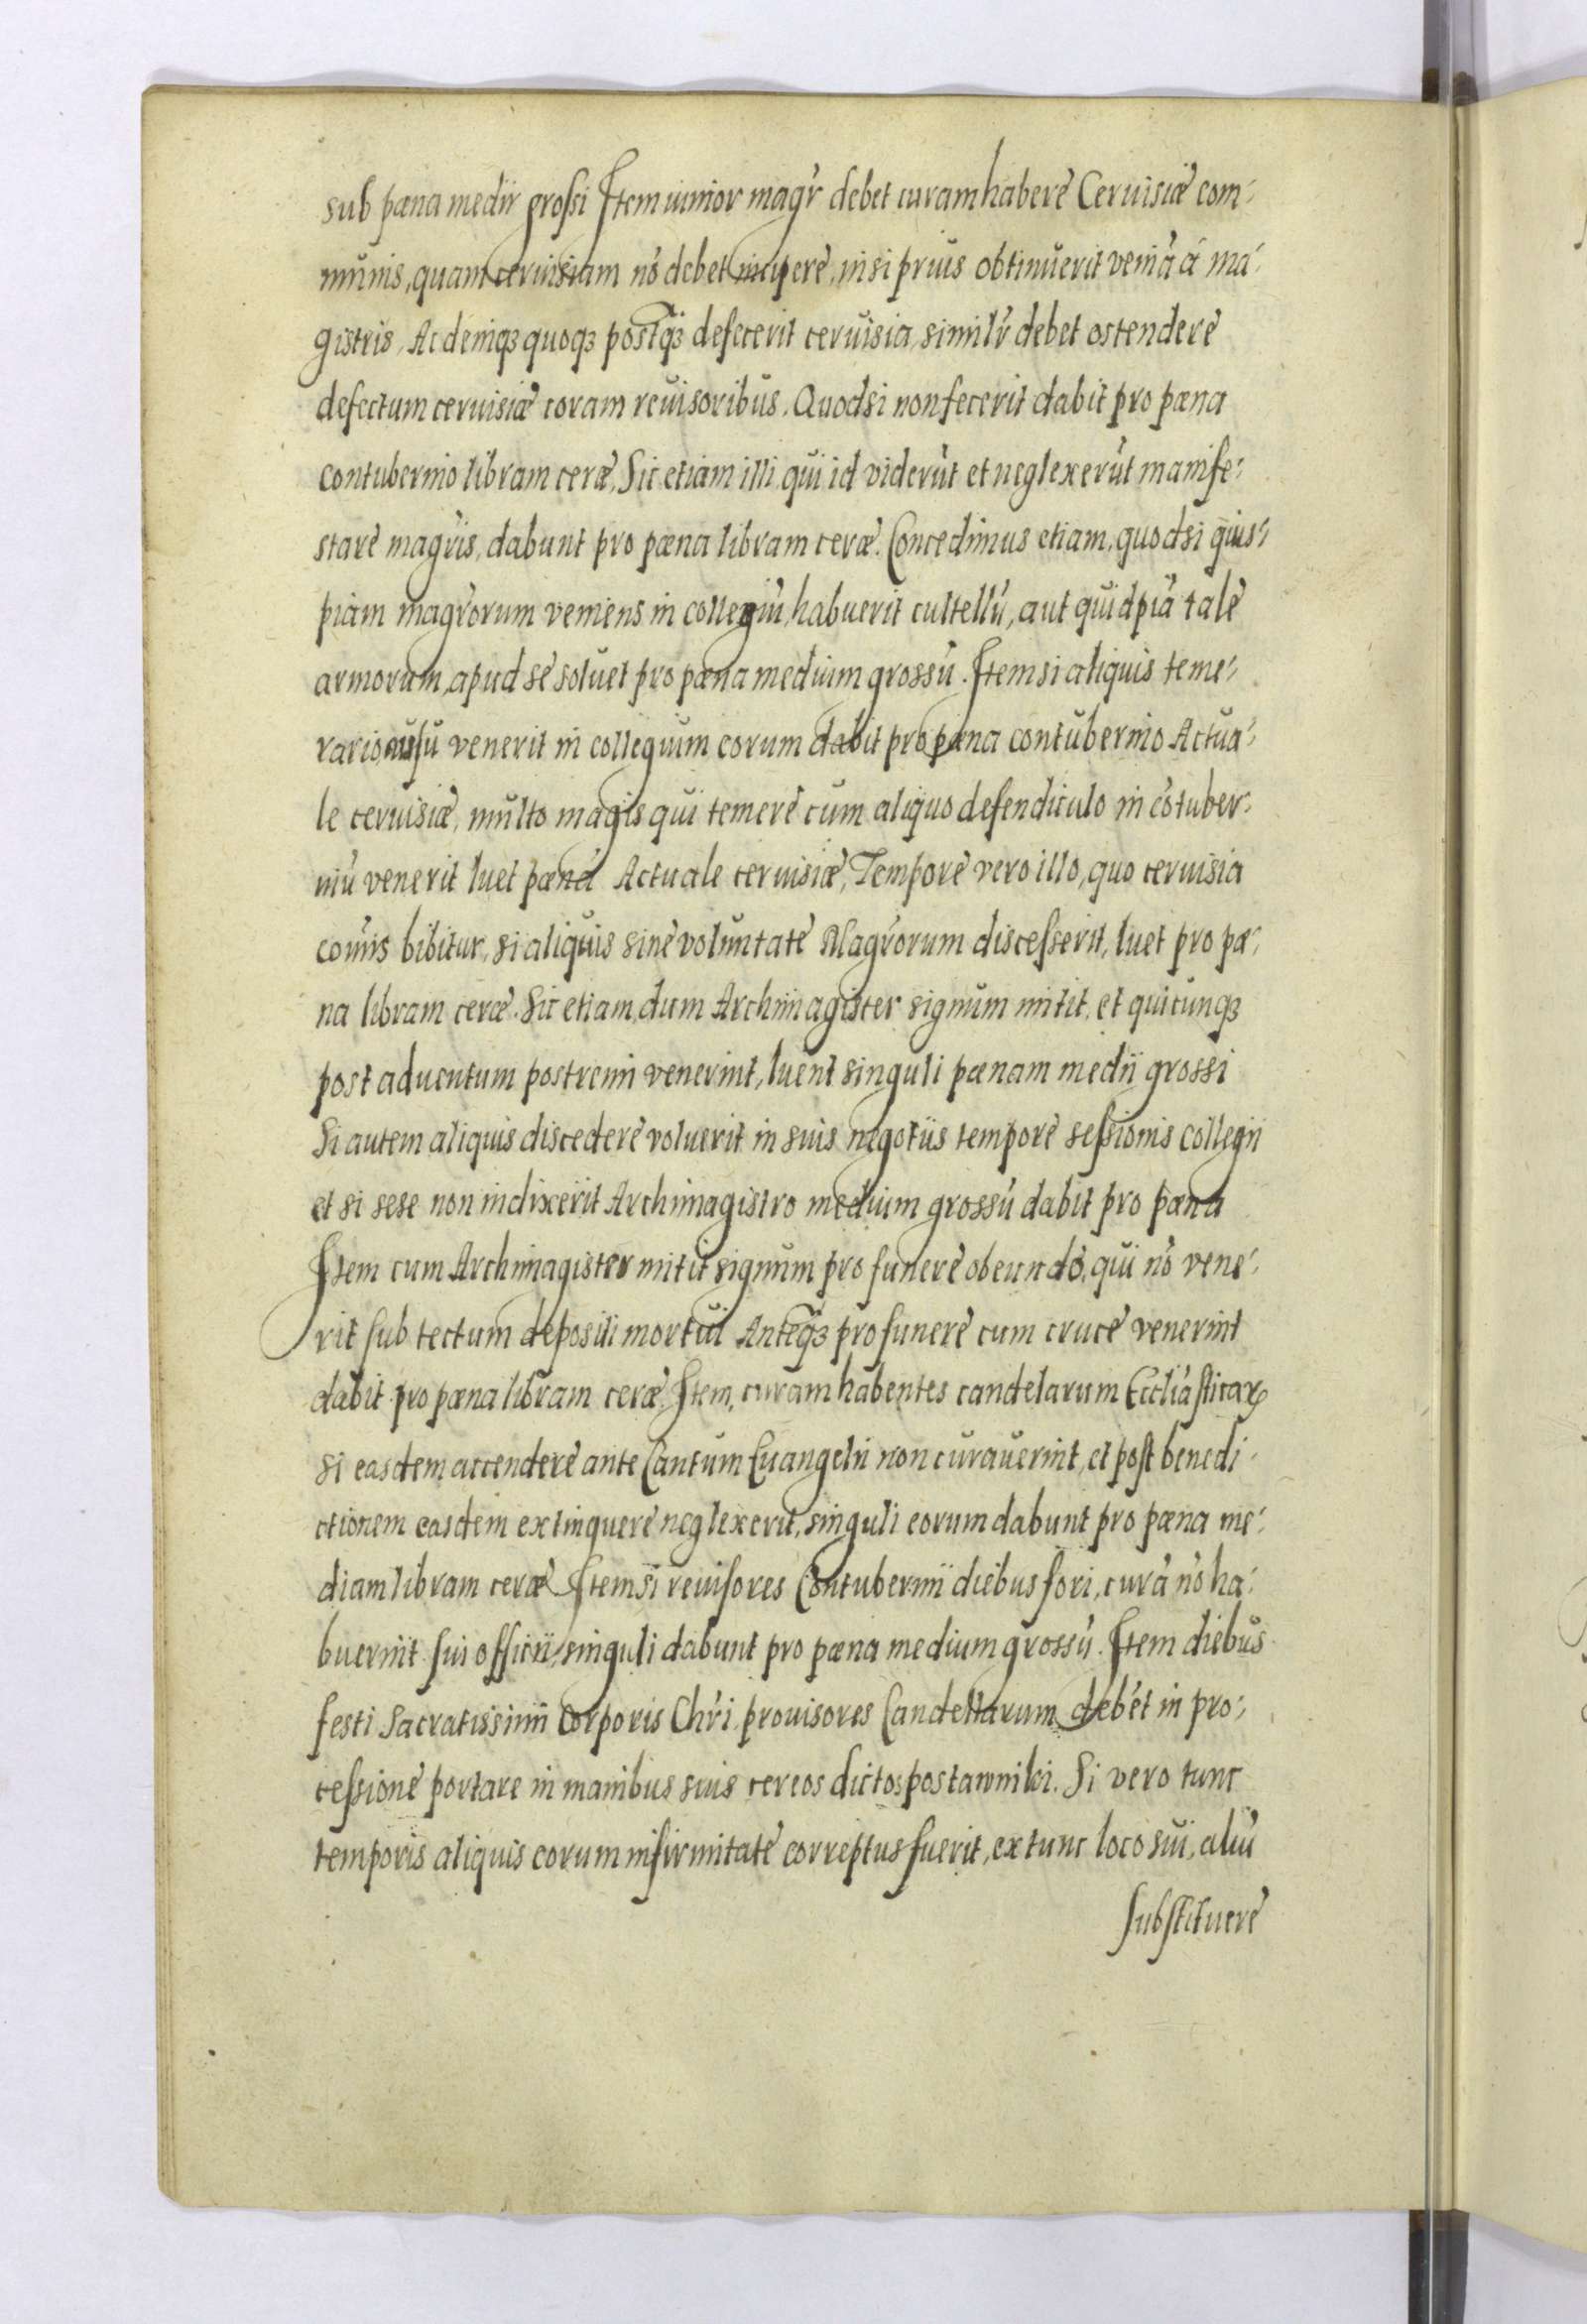 sub pæna medii grossi Item iunior magr̃ debet curam habere Ceruisiæ com-
munis, quam ceruisiam nõ debet incipere, nisi prius obtinuerit veniã á ma-
gistris, Ac deniqꝫ quoqꝫ postqꝫ̃ defecerit ceruisia, similr̃ debet ostendere
defectum ceruisiæ coram reuisoribus. Quodsi non fecerit dabit pro pæna
contubernio libram ceræ, Sic etiam illi, qui id viderũt et neglexerũt manife-
stare magr̃is, dabunt pro pæna libram ceræ. Concedimus etiam, quodsi quis-
piam magr̃orum veniens in collegiũ, habuerit cultellũ, aut quidpiã tale
armorum, apud se soluet pro pæna medium grossũ. Item si aliquis teme-
rario ausu venerit in collegium eorum dabit pro pæna contubernio Actua-
le ceruisiæ, multo magis qui temere cum aliquo defendiculo in cõtuber-
niũ venerit luet pænã Actuale ceruisiæ, Tempore vero illo, quo ceruisia
cõmis bibitur, si aliquis sine voluntate Magr̃orum discesserit, luet pro pæ-
na libram ceræ. Sic etiam, dum Archimagister signum mitit, et quicunqꝫ
post aduentum postremi venerint, luent singuli pænam medii grossi
Si autem aliquis discedere voluerit in suis negotiis tempore sessionis collegii
et si sese non indixerit Archimagistro medium grossũ dabit pro pæna
Item cum Archimagister mitit signum pro funere obeundo, qui nõ vene-
rit sub tectum depositi mortui Anteqꝫ̃ pro funere cum cruce venerint
dabit pro pæna libram ceræ. Item, curam habentes candelarum Eccliãsticaꝝ
si easdem accendere ante Cantum Euangelii non curauerint, et post benedi-
ctionem easdem extinguere neglexerit, singuli eorum dabunt pro pæna me-
diam libram ceræ Item si reuisores Contubernii diebus fori, curã nõ ha-
buerint sui officii, singuli dabunt pro pæna medium grossũ. Item diebus
festi Sacratissimi Corporis Chr̃i, prouisores Candellarum debẽt in pro-
cessione portare in manibus suis cereos dictos postawniki. Si vero tunc
temporis aliquis eorum infirmitate correptus fuerit, ex tunc loco sui, aliũ
substituere